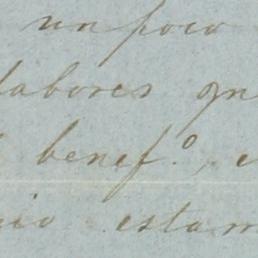 un poco
labores qu
benef.º, e
io estam